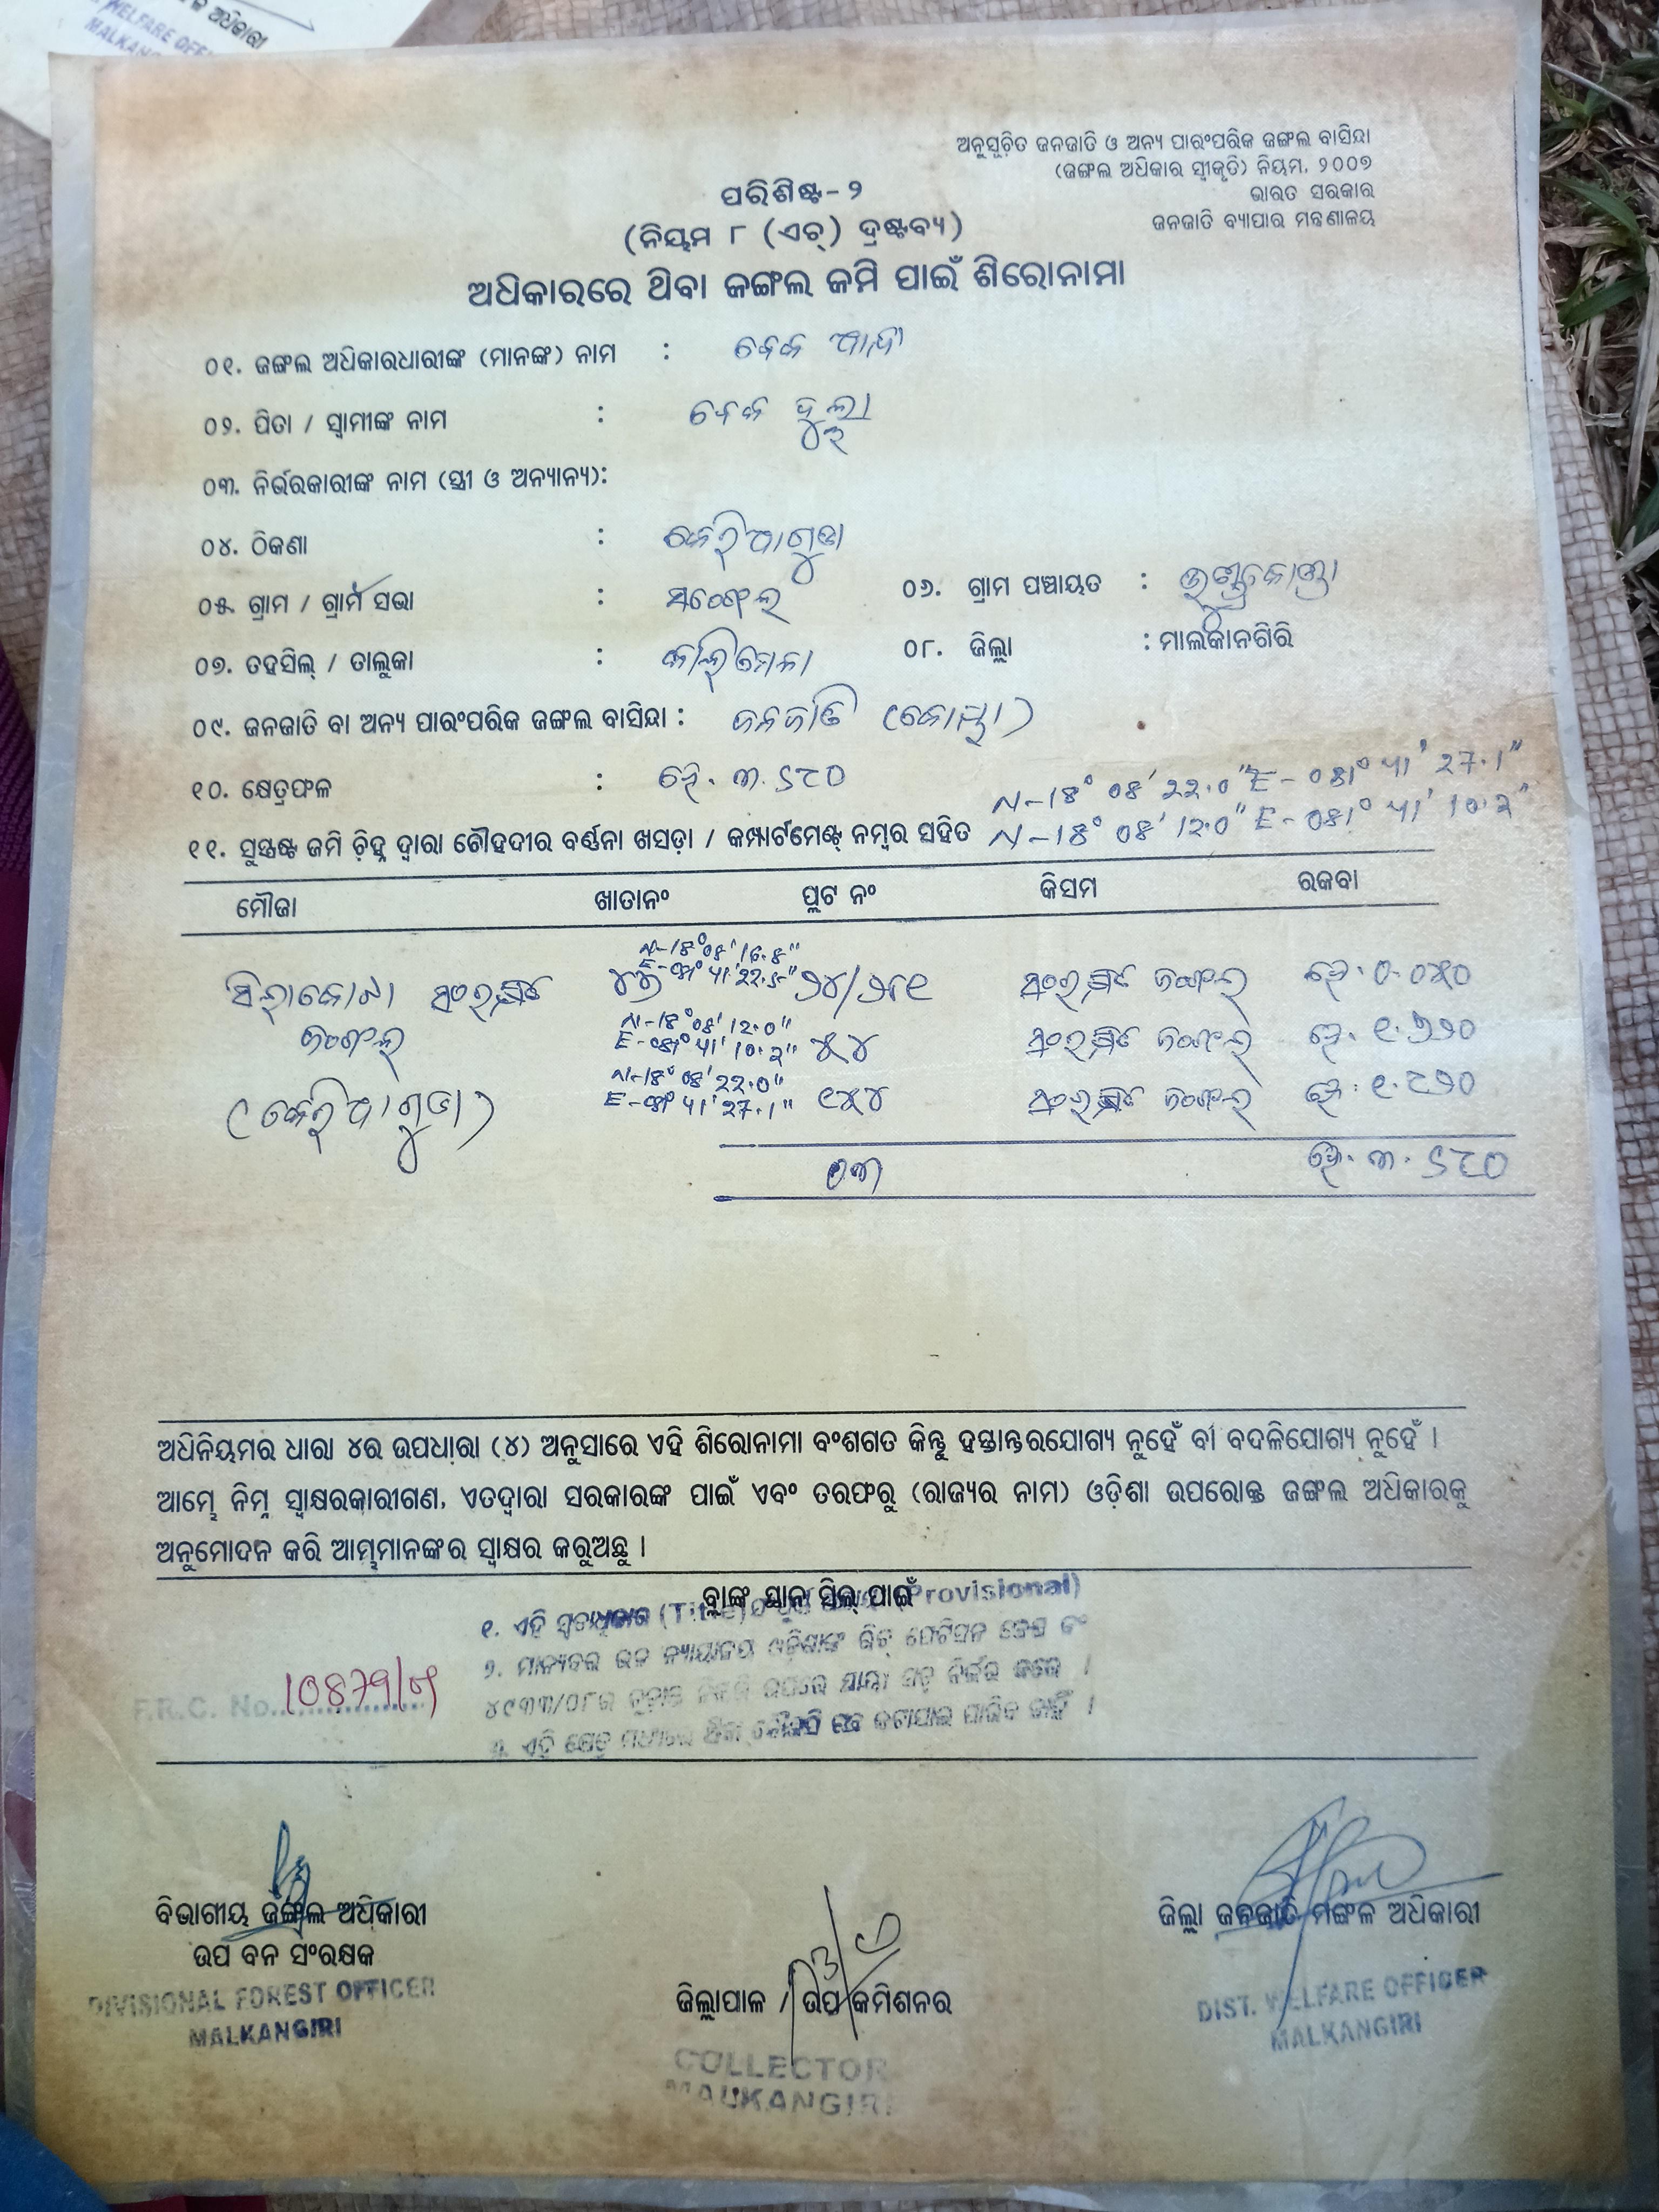 ଅନୁସୂଚିତ ଜନଜାତି ଓ ଅନ୍ୟ ପାରଂପରିକ ଜଙ୍ଗଲ ବାସିନ୍ଦା
(ଜଙ୍ଗଲ ଅଧିକାର ସ୍ୱୀକୃତି) ନିୟମ, ୨୦୦୭
ଭାରତ ସରକାର
ଜନଜାତି ବ୍ୟାପାର ମନ୍ତ୍ରଣାଳୟ
ପରିଶିଷ୍ଟ-୨
(ନିୟମ ୮ (ଏଚ୍) ଦ୍ରଷ୍ଟବ୍ୟ)
ଅଧିକାରରେ ଥିବା ଜଙ୍ଗଲ ଜମି ପାଇଁ ଶିରୋନାମା
୦୧. ଜଙ୍ଗଲ ଅଧିକାରଧାରୀଙ୍କ (ମାନଙ୍କ) ନାମ :
୦୨. ପିତା / ସ୍ୱାମୀଙ୍କ ନାମ :
୦୩. ନିର୍ଭରକାରୀଙ୍କ ନାମ (ସ୍ତ୍ରୀ ଓ ଅନ୍ୟାନ୍ୟ):
୦୪. ଠିକଣା : କେରିଆଗୁଡା
୦୫. ଗ୍ରାମ / ଗ୍ରାମ ସଭା : ୦୬. ଗ୍ରାମ ପଞ୍ଚାୟତ :
୦୭. ତହସିଲ୍ / ତାଲୁକା : କାଲିମେଳା ୦୮. ଜିଲ୍ଲା : ମାଲକାନଗିରି
୦୯. ଜନଜାତି ବା ଅନ୍ୟ ପାରଂପରିକ ଜଙ୍ଗଲ ବାସିନ୍ଦା : ଜନଜାତି (କୋୟା)
୧୦. କ୍ଷେତ୍ରଫଳ : ହେ. ୩.୬୮୦ N-18° 08' 22.0" E-081° 41' 27.1"
୧୧. ସୁସ୍ପଷ୍ଟ ଜମି ଚିହ୍ନ ଦ୍ୱାରା ଚୌହଦୀର ବର୍ଣ୍ଣନା ଖସଡ଼ା / କମ୍ପାର୍ଟମେଣ୍ଟ୍ ନମ୍ବର ସହିତ N-18° 08' 12.0" E-081° 41' 10.2"
ମୌଜା ଖାତାନଂ ପ୍ଲଟ ନଂ କିସମ ରକବା
N-18° 08' 16.8"
E-081° 41' 22.5"
ସଂରକ୍ଷିତ ସଂରକ୍ଷିତ ଜଙ୍ଗଲ ହେ. ୦.୦୪୦
N-18° 08' 12.0"
ଜଙ୍ଗଲ E-081° 41' 10.2" ୪୪ ସଂରକ୍ଷିତ ଜଙ୍ଗଲ ହେ. ୧.୭୨୦
N-18° 08' 22.0"
(କେରିଆଗୁଡା) E-081° 41' 27.1" ୧୪୪ ସଂରକ୍ଷିତ ଜଙ୍ଗଲ ହେ. ୧.୮୨୦
୦୩ ହେ. ୩.୬୮୦
ଅଧିନିୟମର ଧାରା ୪ର ଉପଧାରା (୪) ଅନୁସାରେ ଏହି ଶିରୋନାମା ବଂଶଗତ କିନ୍ତୁ ହସ୍ତାନ୍ତରଯୋଗ୍ୟ ନୁହେଁ ବା ବଦଳିଯୋଗ୍ୟ ନୁହେଁ ।
ଆମ୍ଭେ ନିମ୍ନ ସ୍ୱାକ୍ଷରକାରୀଗଣ, ଏତଦ୍ୱାରା ସରକାରଙ୍କ ପାଇଁ ଏବଂ ତରଫରୁ (ରାଜ୍ୟର ନାମ) ଓଡ଼ିଶା ଉପରୋକ୍ତ ଜଙ୍ଗଲ ଅଧିକାରକୁ
ଅନୁମୋଦନ କରି ଆମ୍ଭମାନଙ୍କର ସ୍ୱାକ୍ଷର କରୁଅଛୁ ।
ବ୍ଲାଙ୍କ ସ୍ଥାନ ସିଲ୍ ପାଇଁ
୧. ଏହି (Provisional)
୨. ମାନ୍ୟବର
୪୯୩୩/୦୮ର
F.R.C. No. 10879/09
ଏହି
ବିଭାଗୀୟ ଜଙ୍ଗଲ ଅଧିକାରୀ
ଉପ ବନ ସଂରକ୍ଷକ
DIVISIONAL FOREST OFFICER
MALKANGIRI
ଜିଲ୍ଲାପାଳ / ଉପ କମିଶନର
COLLECTOR
MALKANGIRI
ଜିଲ୍ଲା ଜନଜାତି ମଙ୍ଗଳ ଅଧିକାରୀ
DIST. WELFARE OFFICER
MALKANGIRI